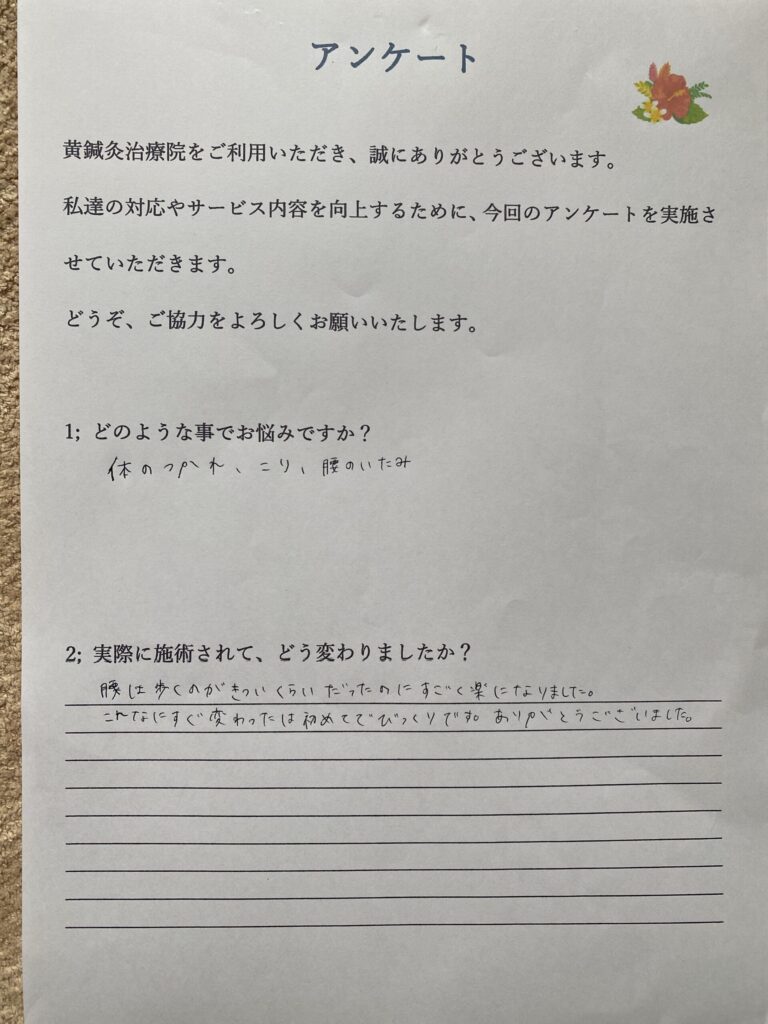 アンケート
黄鍼灸治療院をご利用いただき、誠にありがとうございます。
私達の対応やサービス内容を向上するために、今回のアンケートを実施さ
せていただきます。
どうぞ、ご協力をよろしくお願いいたします。
1; どのような事でお悩みですか？
体のつかれ、こり、腰のいたみ
2; 実際に施術されて、どう変わりましたか？
腰は歩くのがきついくらいだったのにすごく楽になりました。
こんなにすぐ変わったは初めてでびっくりです。ありがとうございました。